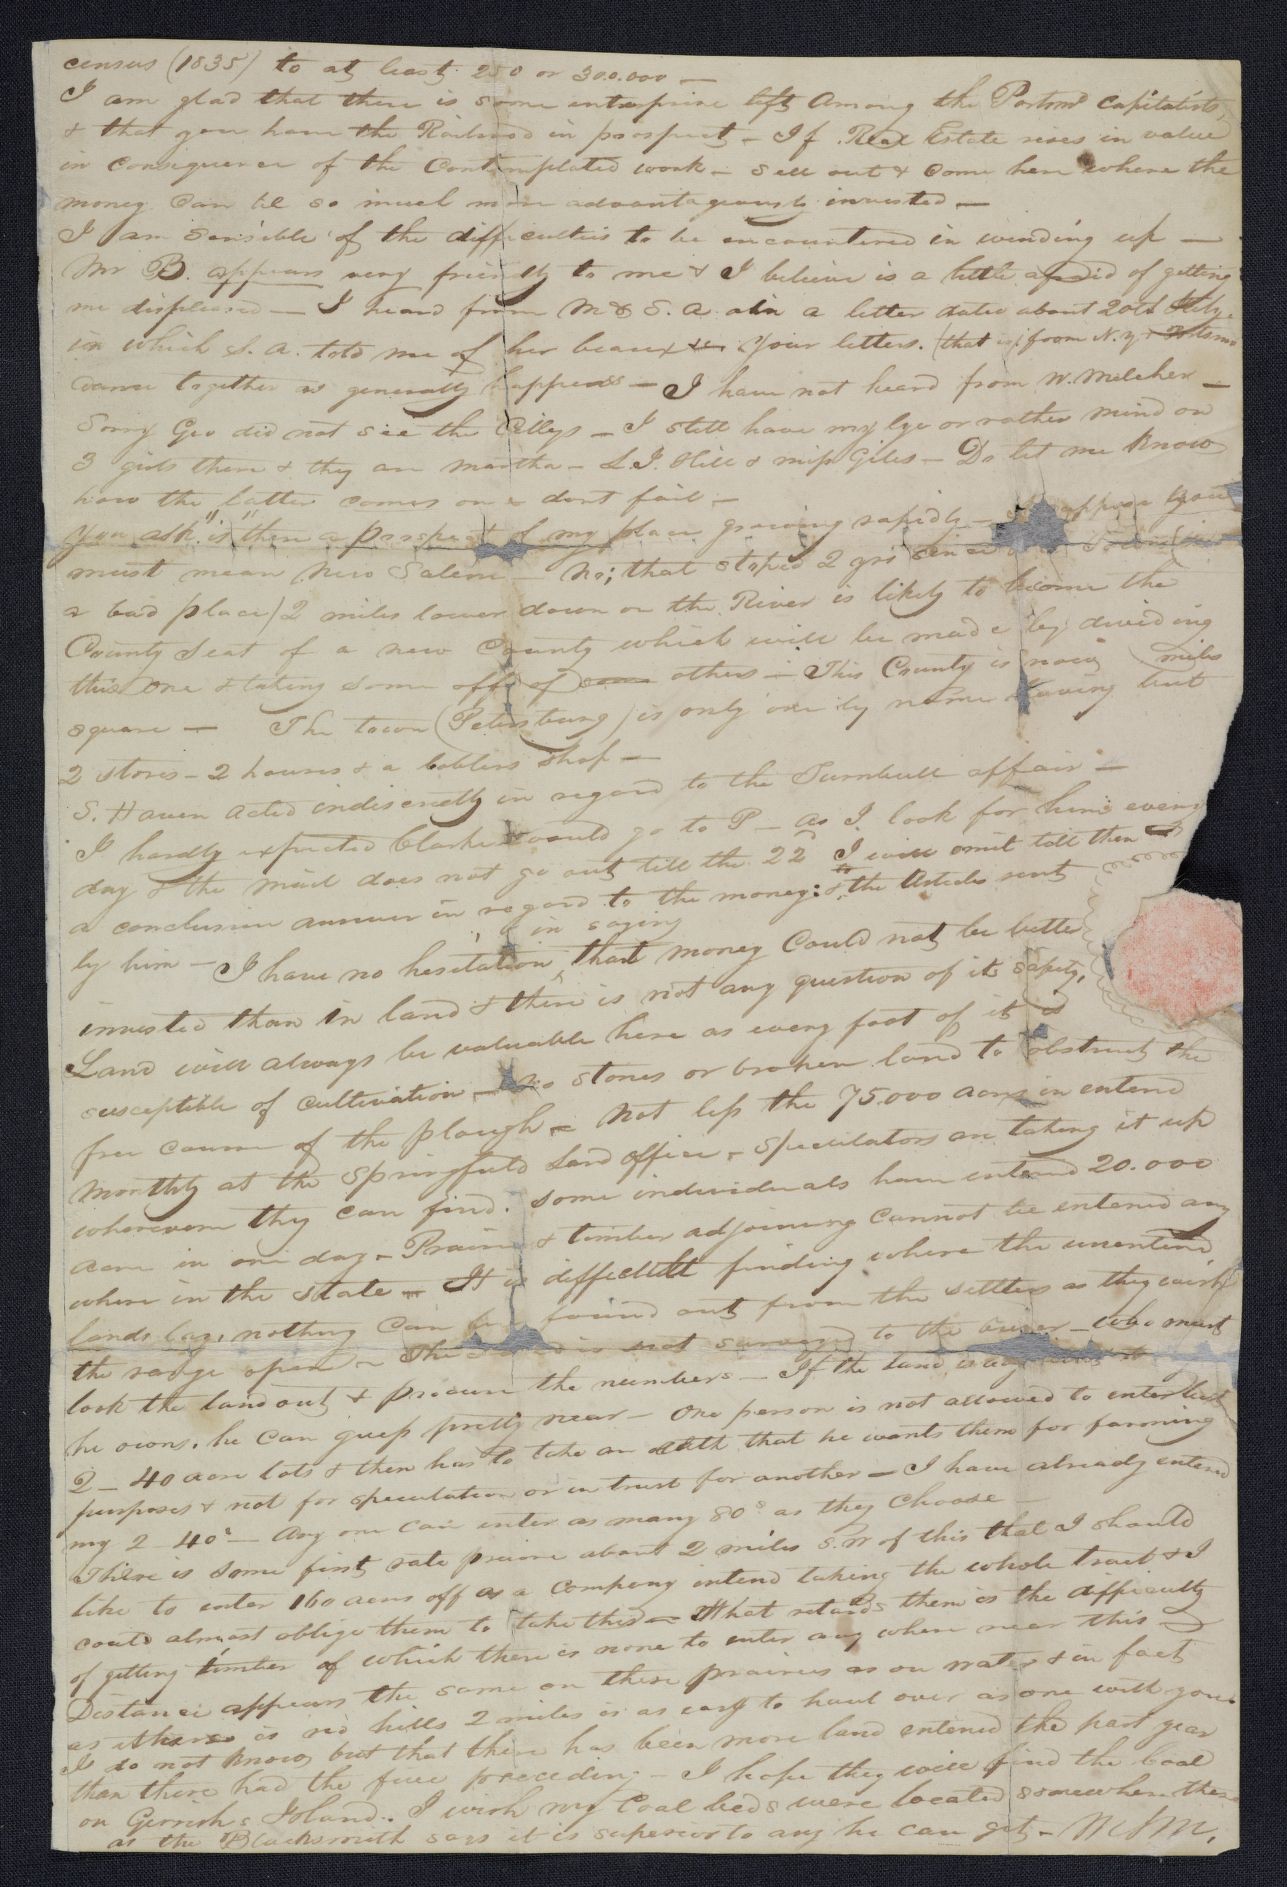 census (1835) to at least 250 or 300.000 —
I am glad that there is some enterprise left among the Portsmo capitalists,
& that you have the Railroad in prospect — If Real Estate rises in value
in consequence of the contemplated work — sell out & come here where the
money can be so much more advantageously invested —
I am sensible of the difficulties to be encountered in winding up —
Mr B. appears very friendly to me & I believe is a little afraid of getting
me displeased — I heard from M & S. A. in a letter dated about 20th
in which S. A. told me of her beaux &c. Your letters. (that is from N. Y &
came together as generally happens — I have not heard from W. Melcher —
Sorry Geo did not see the Cillys — I still have my eye or rather mind on
3 girls there & they are Martha — L. J. Hill & miss Giles — Do let me know
how the latter comes on & dont fail —
You ask "is there a prospect of my place growing rapidly — suppose you
must mean New Salem — No; that stoped 2 yrs since
a bad place) 2 miles lower down on the River is likely to become the
County Seat of a new County which will be made by dividing
this one & taking some off of others — This County is now miles
square — The town (Petersburg) is only one by name having but
2 stores — 2 houses & a coblers shop —
S. Haven acted indiscreetly in regard to the Turnbull affair —
I hardly expected Clarke would go to P — as I look for him every
day & the mail does not go out till the 22d I will omit till then
a conclusive answer in regard to the money: & to the articles sent
by him — I have no hesitation in saying that money could not be better
invested than in land & there is not any question of its safety,
Land will always be valuable here as every foot of it is
susceptible of cultivation — no stones or broken land to obstruct the
free course of the plough — Not less the 75.000 acres are entered
monthly at the Springfield Land office — speculators are taking it up
wherever they can find. some individuals have entered 20.000
acres in one day — Prairie & timber adjoining cannot be entered any
where in the state — It is difficult finding where the unentered
lands lay, nothing can be found out from the settlers as they wish
the range open — The is not surveyed to the buyer — who must
look the land out & procure the numbers — If the land
he owns, he can guess pretty near — One person is not allowed to enter but
2 — 40 acre lots & then has to take an oath that he wants them for farming
purposes & not for speculation or in trust for another — I have already entered
my 2 40s — Any one can enter as many 80s as they choose —
There is some first rate prairie about 2 miles S. W of this that I should
like to enter 160 acres off as a company intend taking the whole tract & I
could almost oblige them to take this — What retards them is the difficulty
of getting timber of which there is none to enter any where near this —
Distance appears the same on these prairies as on water & in fact
as there is no hills 2 miles is as easy to haul over as one with you.
I do not know but that there has been more land entered the past year
than there had the five preceding — I hope they will find the Coal
on Gerrishs Island. I wish my Coal beds were located somewhere there
as the Blacksmith says it is superior to any he can get — M S M,